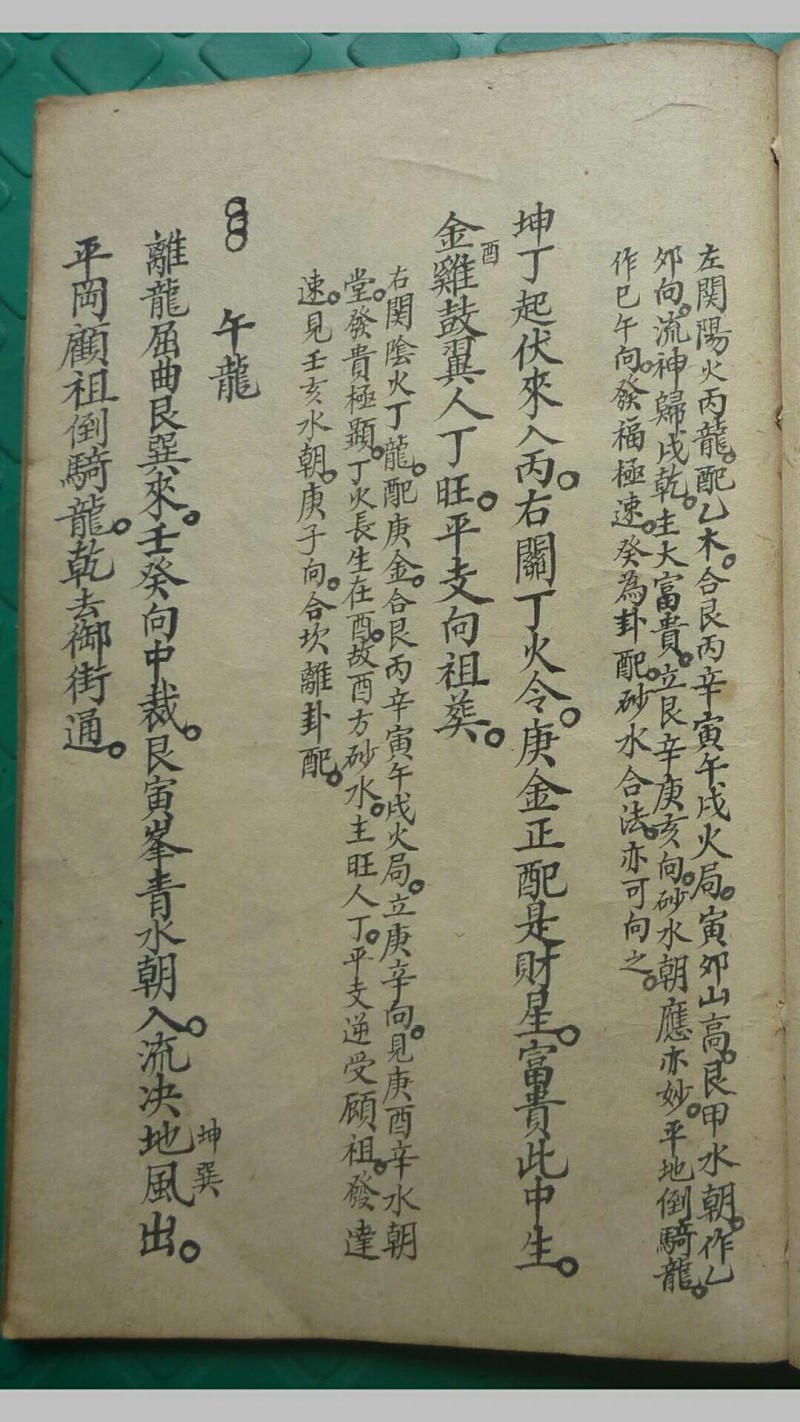 左関陽火丙龍。配乙木。合艮丙辛寅午戌火局。寅夘山高。艮甲水朝。作乙
夘向。流神歸戌乾。主大富貴。立艮辛庚亥向。砂水朝應亦妙。平地倒騎龍。
作巳午向。發福極速。癸為卦配。砂水合法。亦可向之。
坤丁起伏來入丙。右關丁火令。庚金正配是財星。富貴此中生。
酉
金雞鼓翼人丁旺。平支向祖葬。
右関陰火丁龍。配庚金。合艮丙辛寅午戌火局。立庚辛向。見庚酉辛水朝
堂。發貴極顯。丁火長生在酉。故酉方砂水。主旺人丁。平支逆受顧祖。發達
速。見壬亥水朝。庚子向。合坎離卦配。
午龍
坤巽
離龍屈曲艮巽來。壬癸向中裁。艮寅峯青水朝入。流决地風出。
平岡顧祖倒騎龍。乾去御街通。